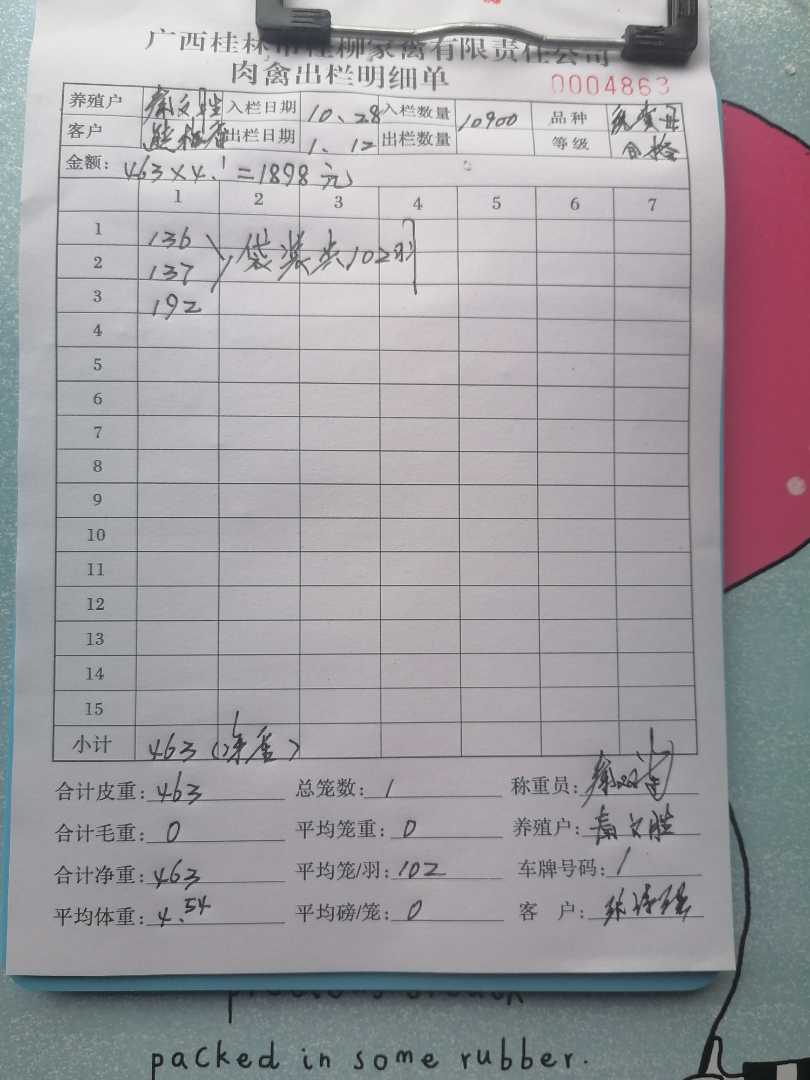 广西桂林市桂柳家禽有限责任公司
肉禽出栏明细单
0004863
养殖户 秦文胜 入栏日期 10.28 入栏数量 10900 品种
客户 出栏日期 1.12 出栏数量 等级 合格
金额: 463×4.1=1898元
1 2 3 4 5 6 7
1 136
2 137 袋装共102羽
3 192
4
5
6
7
8
9
10
11
12
13
14
15
小计 463(净重)
合计皮重: 463 总笼数: 1 称重员:
合计毛重: 0 平均笼重: 0 养殖户: 秦文胜
合计净重: 463 平均笼/羽: 102 车牌号码: 1
平均体重: 4.54 平均磅/笼: 0 客 户:
packed in some rubber.